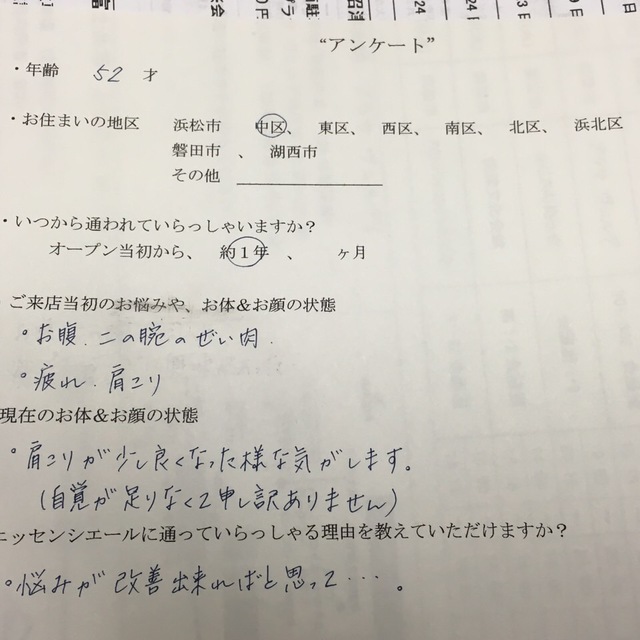 “アンケート”
・年齢 52 才
・お住まいの地区 浜松市 中区、 東区、 西区、 南区、 北区、 浜北区
磐田市 、 湖西市
その他
・いつから通われていらっしゃいますか？
オープン当初から、 約1年 、 ヶ月
ご来店当初のお悩みや、お体&お顔の状態
・お腹、二の腕のぜい肉.
・疲れ、肩こり
現在のお体&お顔の状態
・肩こりが少し良くなった様な気がします。
(自覚が足りなくて申し訳ありません)
エッセンシエールに通っていらっしゃる理由を教えていただけますか？
・悩みが改善出来ればと思って・・・。